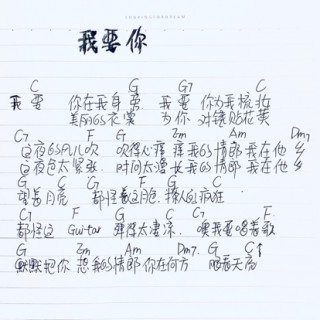 我要你
C G G7 C
我要 你在我身旁 我要 你为我梳妆
美丽的衣裳 为你 对镜贴花黄
C7 F G Em Am Dm7
这夜的风儿吹 吹得心痒痒 我的情郎 我在他乡
这夜色太紧张 时间太漫长 我的情郎 我在他乡
G C G F G C
望着月亮 都怪着月色 撩人的疯狂
C7 F G C C7 F
都怪这 Guitar 弹得太凄凉 噢我要唱着歌
G Em Am Dm7. G C↑
默默把你 想 我的情郎 你在何方 眼看天亮